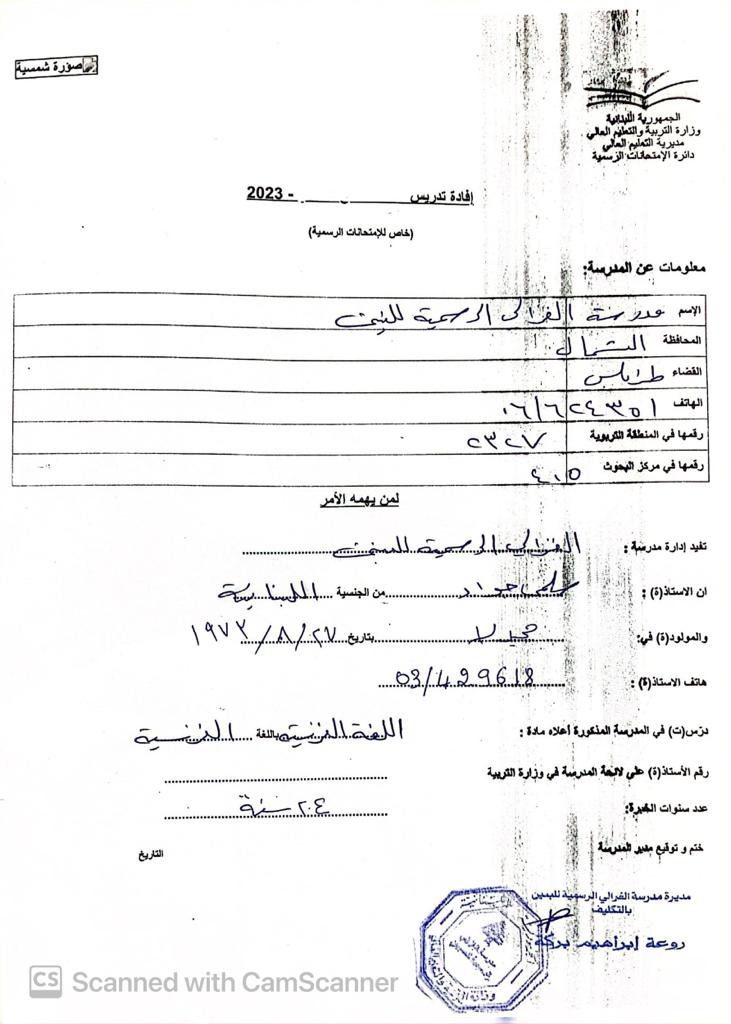 صورة شمسية
الجمهورية اللبنانية
وزارة التربية والتعليم العالي
مديرية التعليم العالي
دائرة الإمتحانات الرسمية
إفادة تدريس ـــــــــ - 2023
(خاص للإمتحانات الرسمية)
معلومات عن المدرسة:
الإسم مدرسة الغزالي الرسمية
المحافظة الشمال
القضاء طرابلس
الهاتف ٠٦/٦٢٤٣٥١
رقمها في المنطقة التربوية ٢٣٢٧
رقمها في مركز البحوث ٤٠٥
لمن يهمه الأمر
تفيد إدارة مدرسة : الغزالي الرسمية
ان الاستاذ(ة) : سلمى حداد من الجنسية اللبنانية
والمولود(ة) في: بتاريخ ٢٧/٨/١٩٧٣
هاتف الاستاذ(ة) : 03/429618
درّس(ت) في المدرسة المذكورة أعلاه مادة : اللغة الفرنسية باللغة الفرنسية
رقم الأستاذ(ة) على لائحة المدرسة في وزارة التربية
عدد سنوات الخبرة: سنة
ختم و توقيع مدير المدرسة
التاريخ
مديرة مدرسة الغزالي الرسمية للبنين
بالتكليف
روعة إبراهيم بركة
وزارة التربية والتعليم العالي
CS Scanned with CamScanner